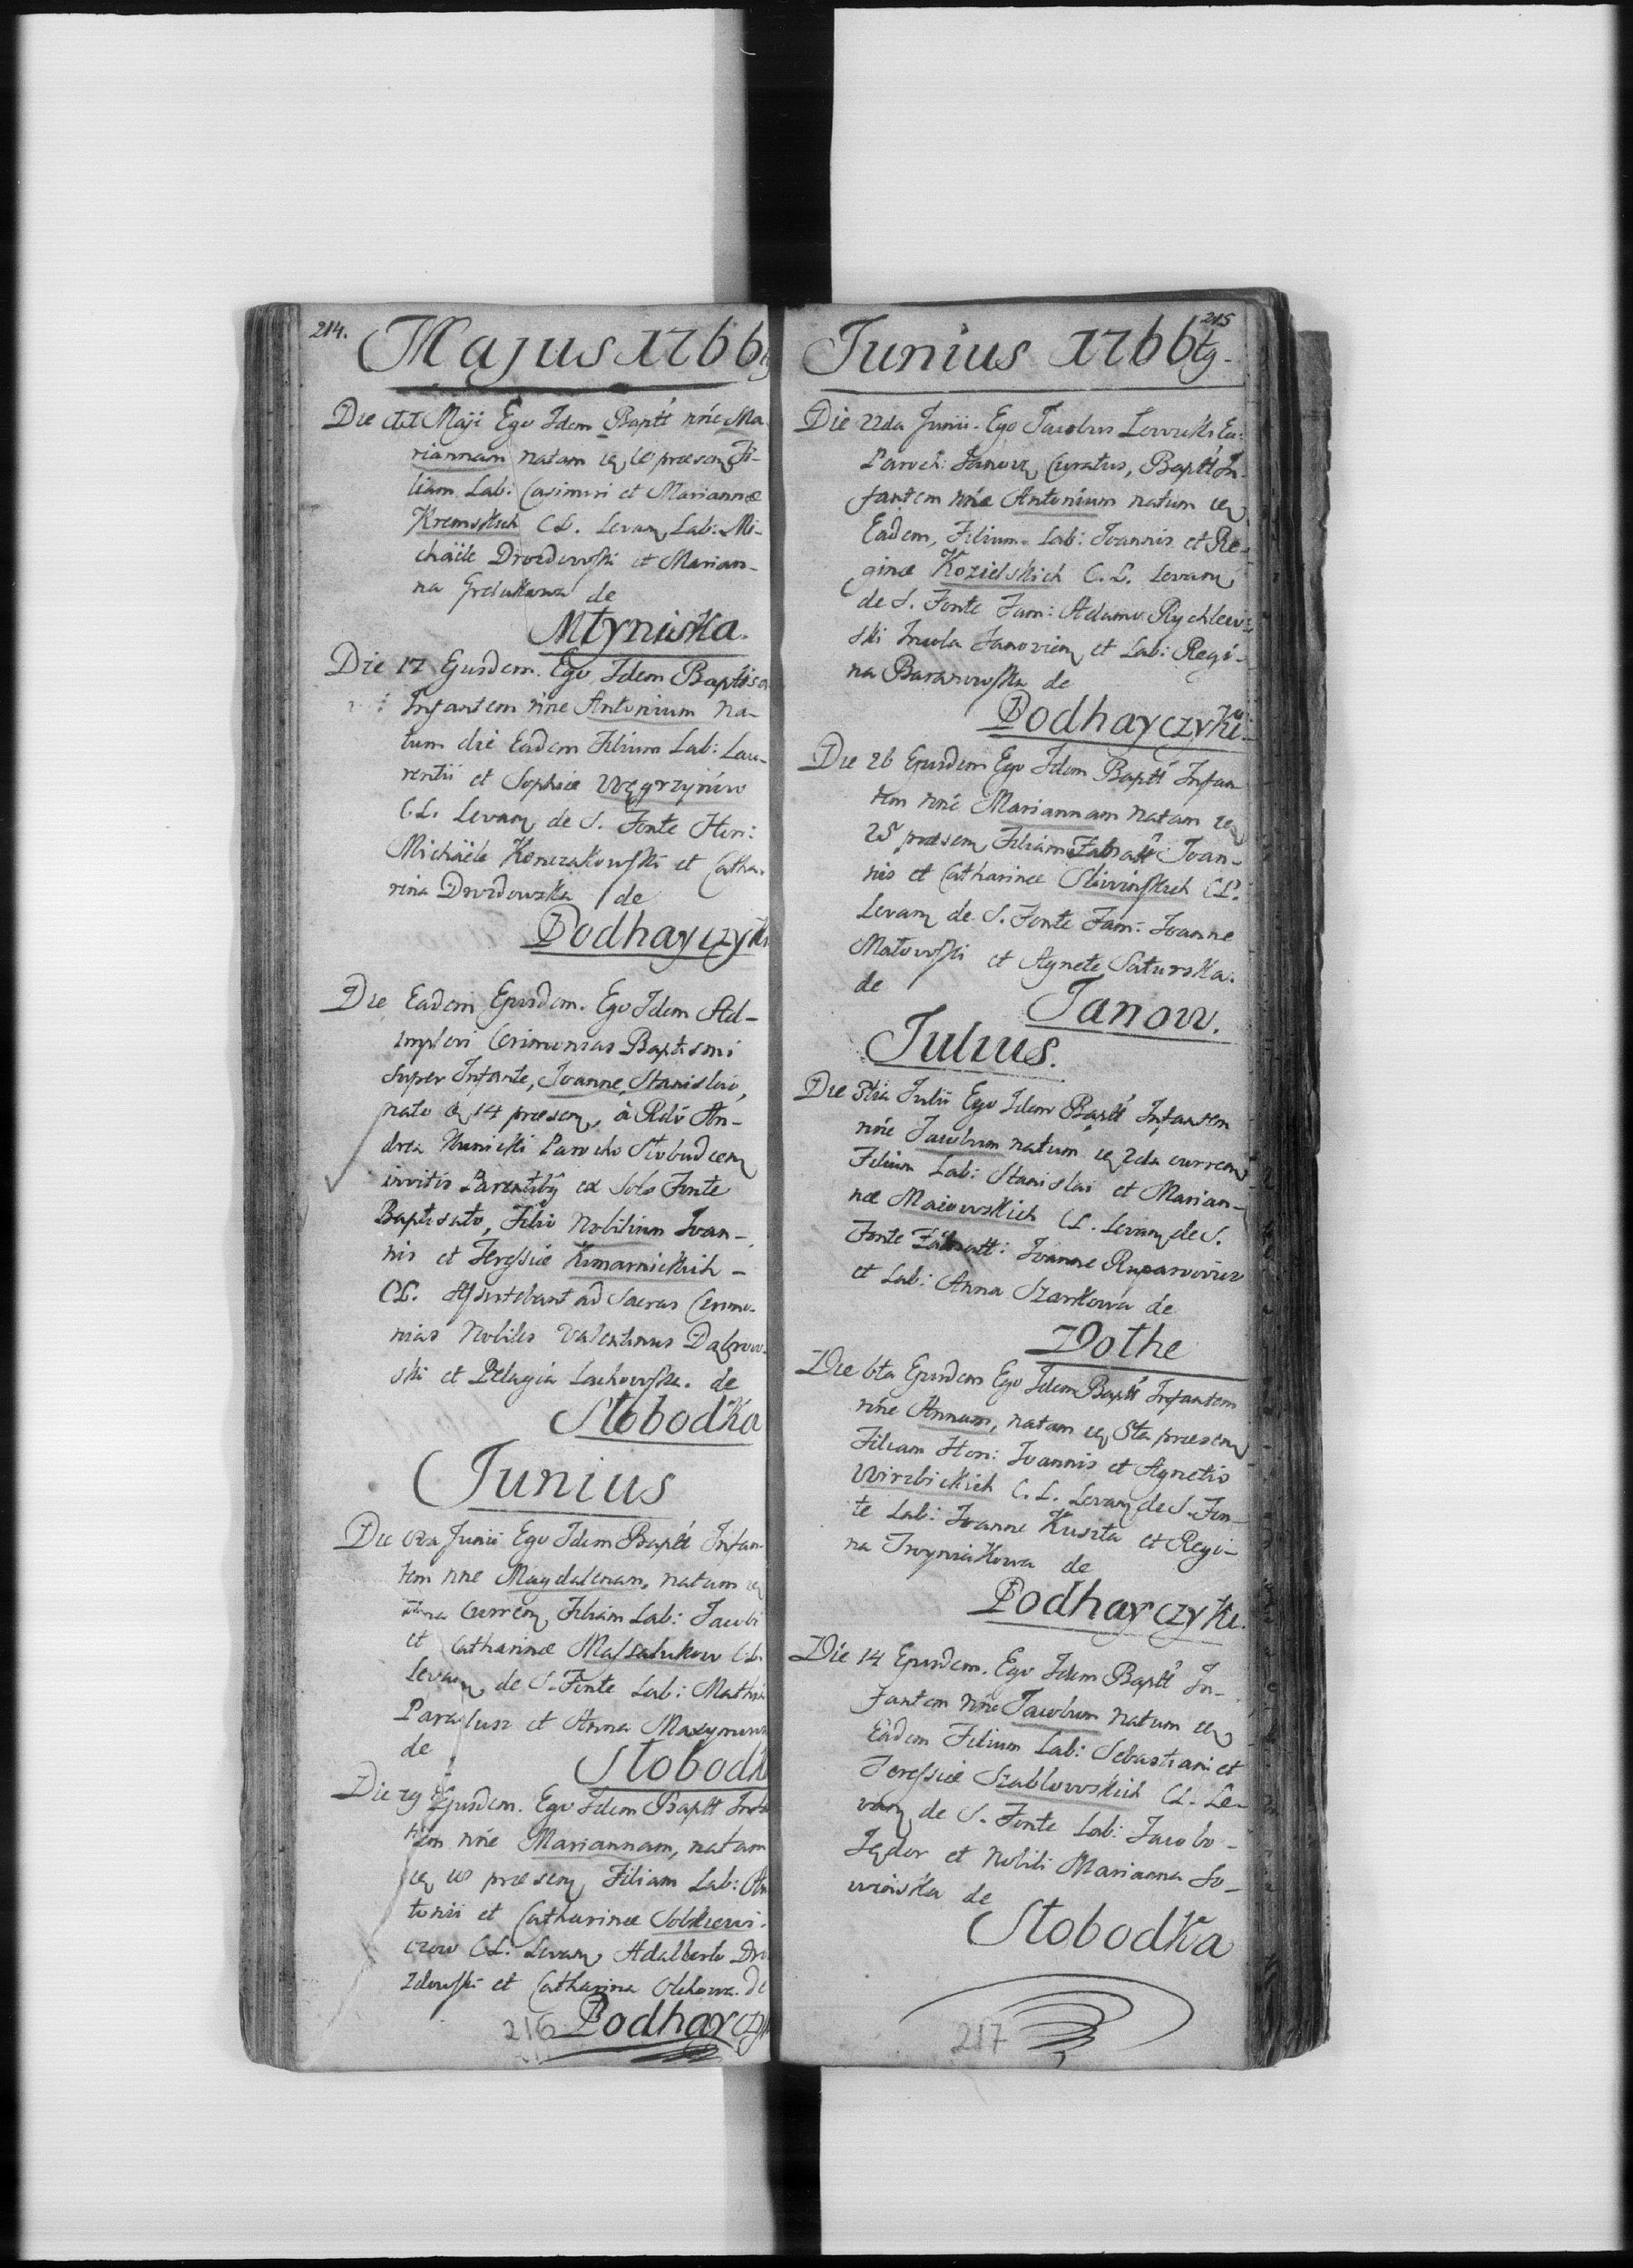 214.
Majus 1766
Die Maji Ego Idem Baptt nne Ma
riannam natam praesen Fi-
liam Lab: Casimiri et Mariannae
Kremskich CL. Levan Lab: Mi-
chaële Drozdowski et Marian-
na de
Młyniska.
Die 17 Ejusdem. Ego Idem Baptisa
Infantem nne Antonium na-
tum die Eadem Filium Lab: Lau-
rentii et Sophiae Węgrzynów
CL. Levan de S. Fonte Hon:
Michäele et Catha-
rina Drozdowska de
Podhayczyki
Die Eadem Ejusdem. Ego Idem Ad-
implevi Cerimonias Baptismi
super Infante, Joanne Stanislao,
nato 14 praesen, à Rdo An-
drea Parocho
invitis ex Solo Fonte
Baptisato, Filio Nobilium Joan-
nis et Teressiae Komarnickich -
CL. Assistebant ad Sacras Cerimo-
nias Nobiles Valentinus Dąbrow-
ski et Pelagia Lachowska. de
Słobodka
Junius
Die Junii Ego Idem Baptt Infan-
tem nne Magdalenam, natam
Curren, Filiam Lab: Jacobi
et Catharinae CL.
Levan de S. Fonte Lab: Mathia
et Anna
de
Słobodk
Die 29 Ejusdem. Ego Idem Baptt
tem nne Mariannam, natam
praesen Filiam Lab: An
tonii et Catharinae Sobkiewi-
czow CL. Levan Adalberto Dro
zdowski et Catharina de
216 Podhayczy
215
Junius 1766tg.
Die 22da Junii. Ego Jacobus Ec:
Paroch: Janow Curatus, Baptt In-
fantem nne Antonium natum
Eadem, Filium Lab: Joannis et Re-
ginae Kozielskich C.L. Levan
de S. Fonte Fam: Adamo Rychlew-
ski Incola Janovien et Lab: Regi-
na Baranowska de
Podhayczyki.
Die 26 Ejusdem Ego Idem Baptt Infan
tem nne Mariannam natam
25 praesen Filiam Joan-
nis et Catharinae Sliwinskich CL.
Levan de S. Fonte Fam: Joanne
Małowski et Agnete Saturska.
de
Janow.
Julius.
Die 3tia Julii Ego Idem Baptt Infantem
nne Jacobum natum 2da curren
Filium Lab: Stanislai et Marian-
nae Maiowskich CL. Levan de S.
Fonte Joanne
et Lab: Anna Szarkowa de
Dothe
Die 6ta Ejusdem Ego Idem Baptt Infantem
nne Annam, natam 5ta praesen
Filiam Hon: Joannis et Agnetis
Wirzbickich C.L. Levan de S. Fon-
te Lab: Joanne Kuszta et Regi-
na de
Podhayczyki.
Die 14 Ejusdem. Ego Idem Baptt In-
fantem nne Jacobum natum
Eadem Filium Lab: Sebastiani et
Teressiae Szablowskich CL. Le-
van de S. Fonte Lab: Jacobo
et Nobili Marianna So-
winska de
Słobodka
217